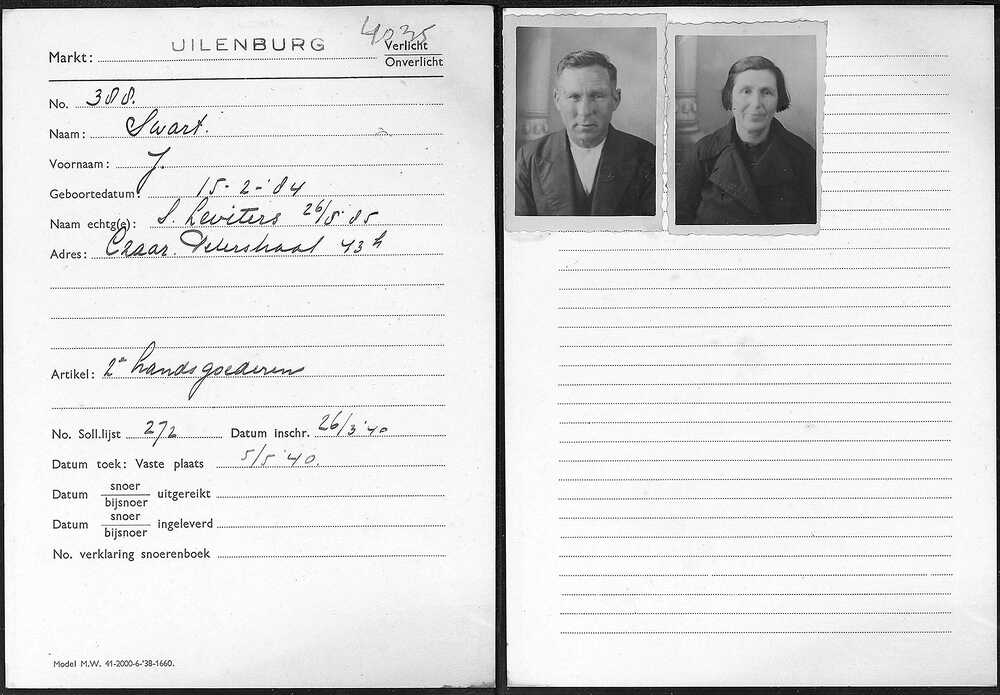 4035
Markt: UILENBURG Verlicht
Onverlicht
No. 388.
Naam: Swart.
Voornaam: J.
Geboortedatum: 15-2-'84
Naam echtg(e): S. Leviters 26/5 '85
Adres: Czaar Peterstraat 43 h
Artikel: 2de handsgoederen
No. Soll.lijst 272 Datum inschr. 26/3 '40
Datum toek: Vaste plaats 5/5 '40.
Datum snoer
bijsnoer uitgereikt
Datum snoer
bijsnoer ingeleverd
No. verklaring snoerenboek
Model M.W. 41-2000-6-'38-1660.